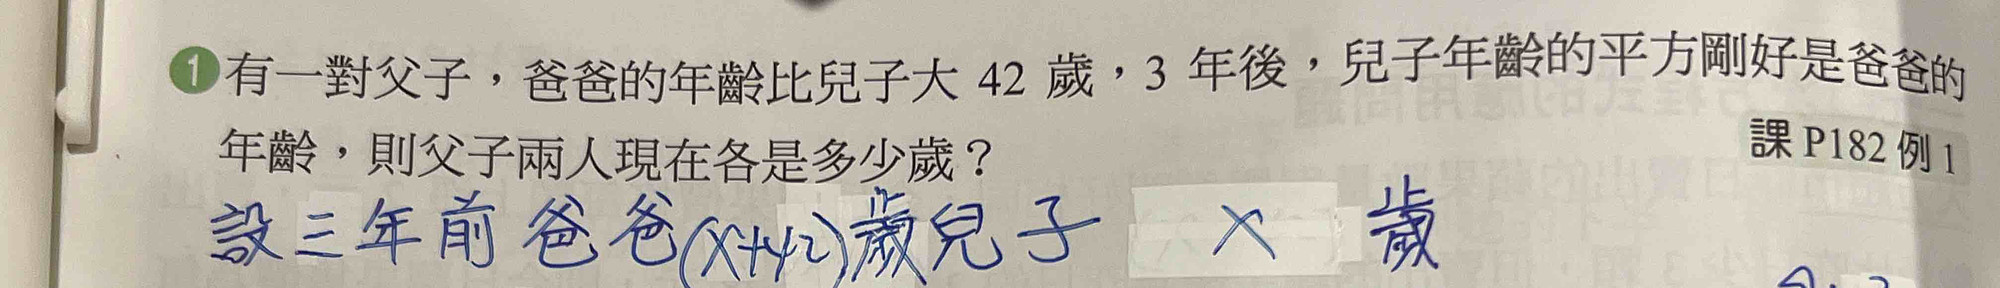 1 有一對父子，爸爸的年齡比兒子大 42 歲，3 年後，兒子年齡的平方剛好是爸爸的
年齡，則父子兩人現在各是多少歲？
課 P182 例 1
設三年前爸爸(x+42)歲兒子 x 歲